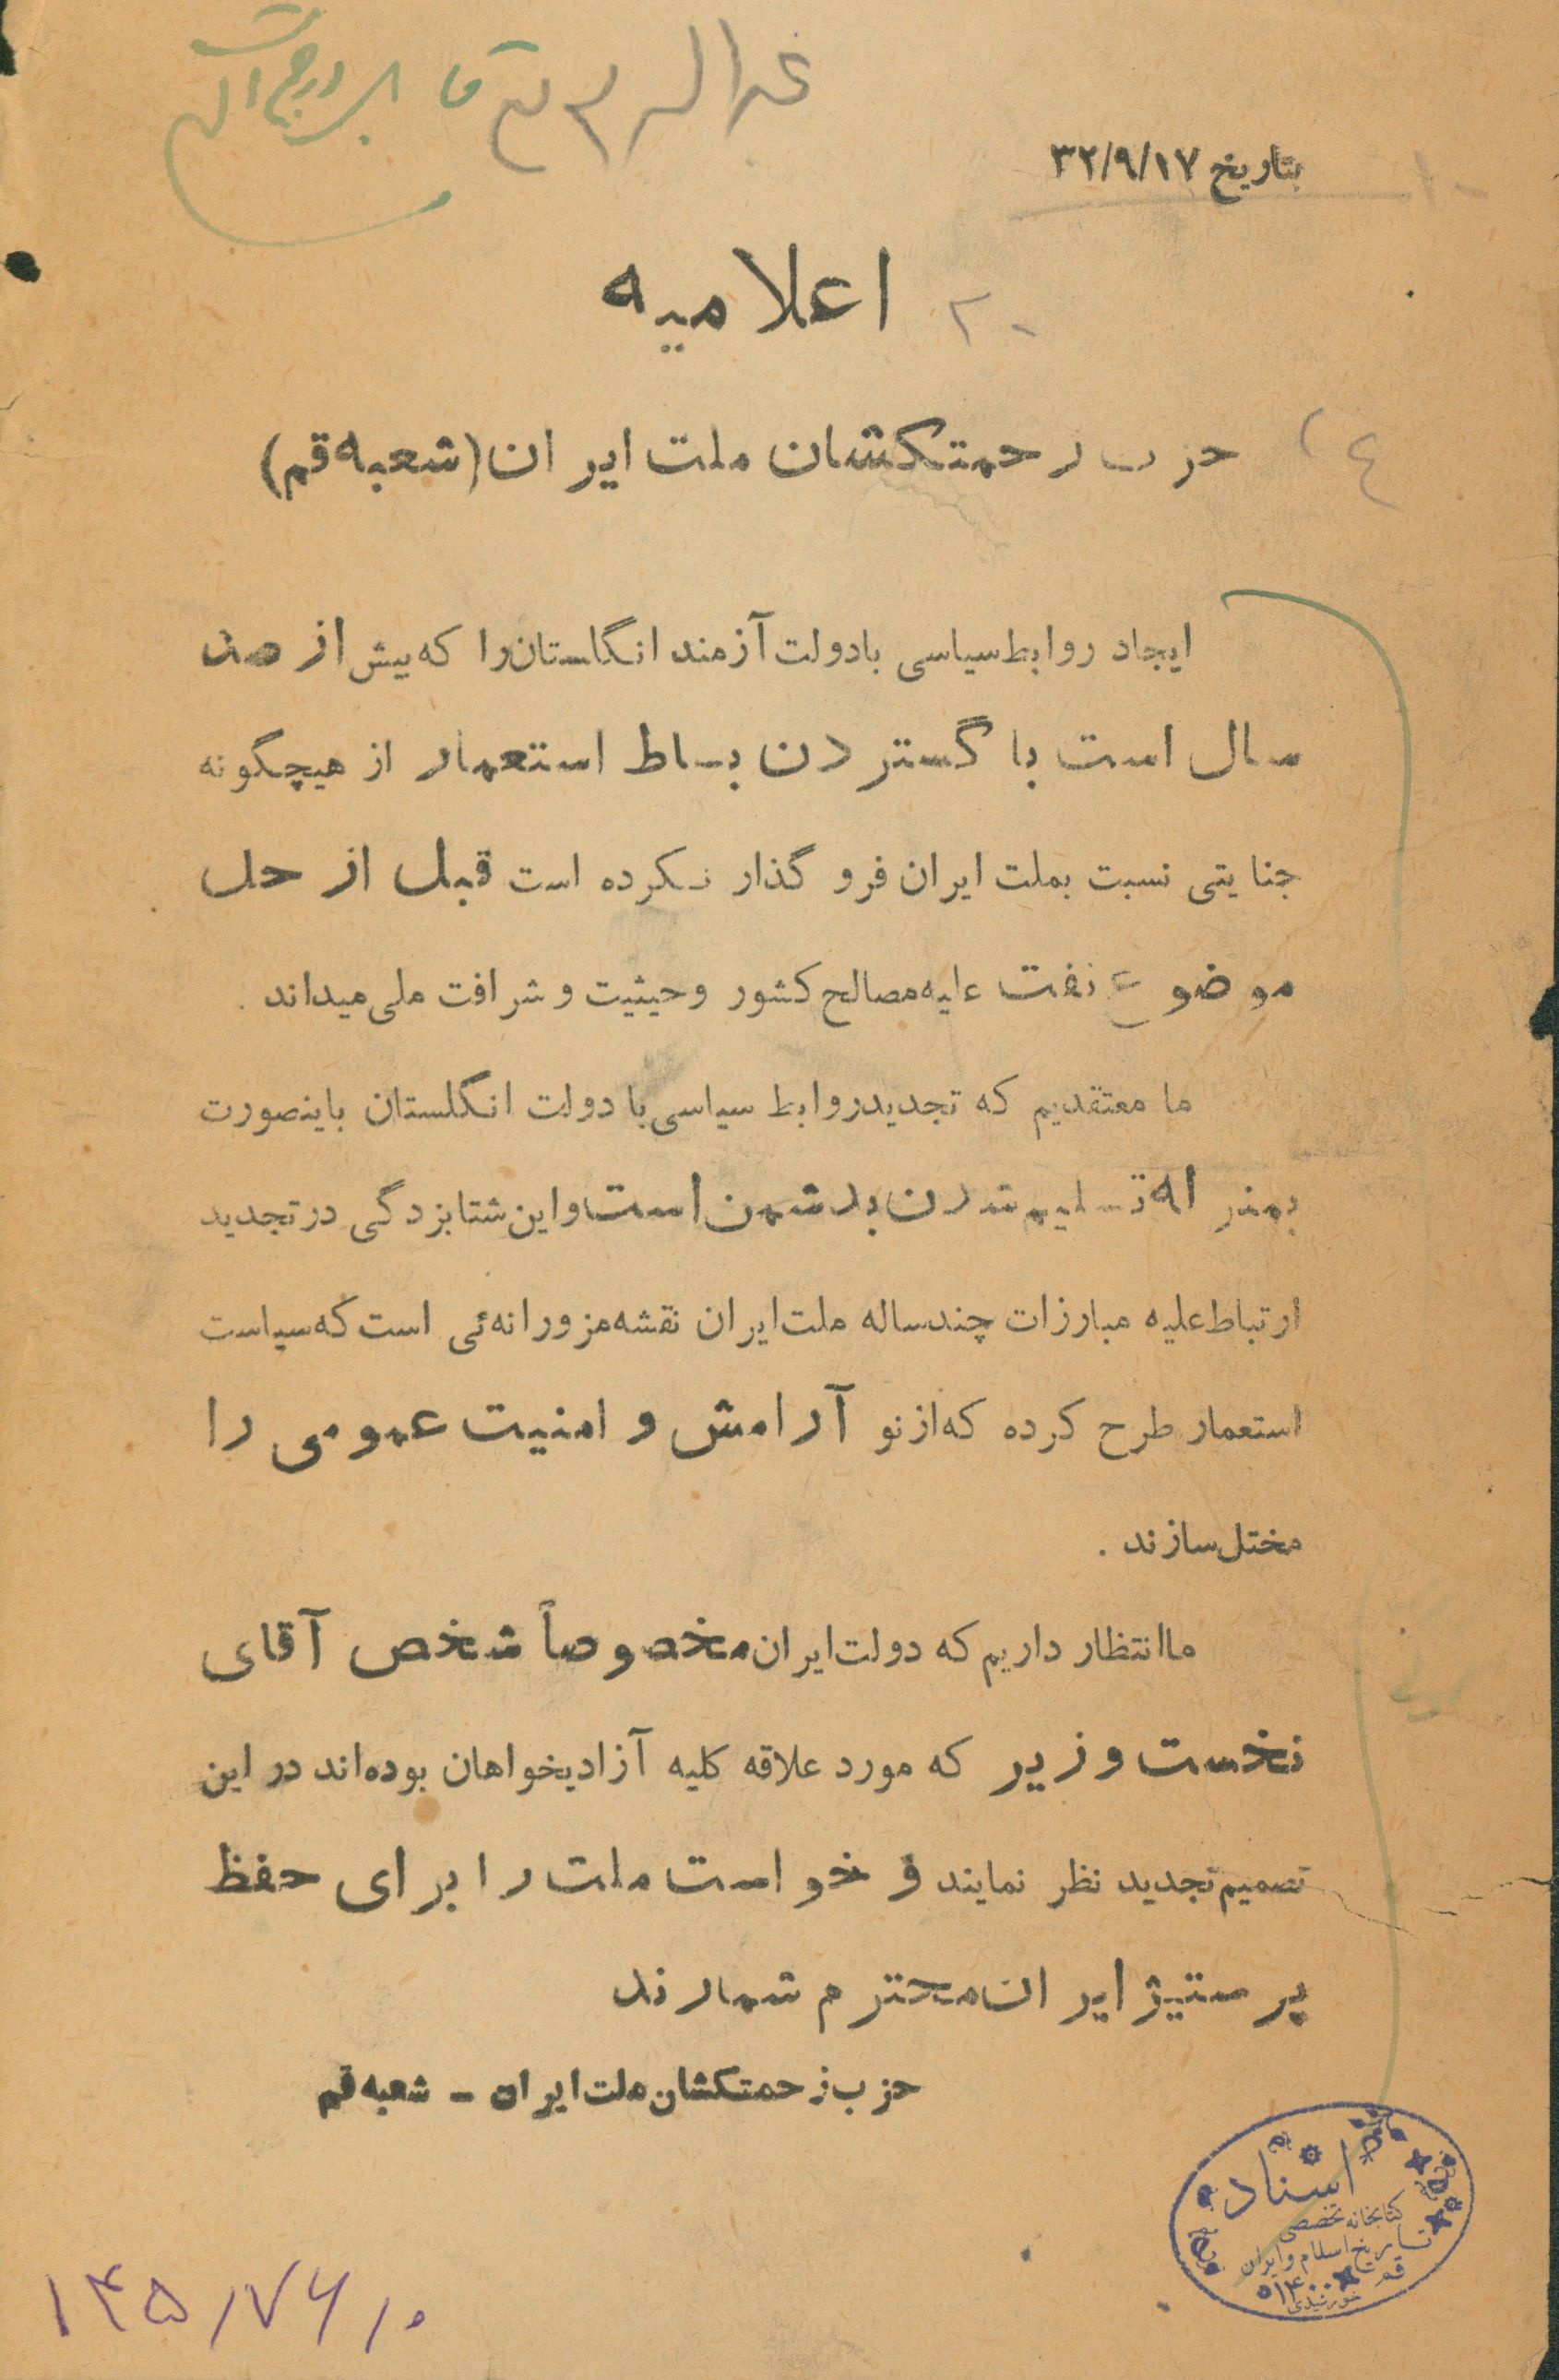 بتاریخ ۳۲/۹/۱۷
اعلامیه
۲-
حزب زحمتکشان ملت ایران (شعبه قم)
ایجاد روابط سیاسی با دولت آزمند انگلستان را که بیش از صد
سال است با گستردن بساط استعمار از هیچگونه
جنایتی نسبت بملت ایران فرو گذار نکرده است قبل از حل
موضوع نفت علیه مصالح کشور و حیثیت و شرافت ملی میداند .
ما معتقدیم که تجدید روابط سیاسی با دولت انگلستان باینصورت
بمنزله تسلیم شدن بدشمن است و این شتابزدگی در تجدید
ارتباط علیه مبارزات چندساله ملت ایران نقشه مزورانه‌ئی است که سیاست
استعمار طرح کرده که از نو آرامش و امنیت عمومی را
مختل سازند .
ما انتظار داریم که دولت ایران مخصوصاً شخص آقای
نخست وزیر که مورد علاقه کلیه آزادیخواهان بوده‌اند در این
تصمیم تجدید نظر نمایند و خواست ملت را برای حفظ
پرستیژ ایران محترم شمارند
حزب زحمتکشان ملت ایران - شعبه قم
اسناد
کتابخانه تخصصی
تاریخ اسلام و ایران
قم
خورشیدی
۱۴۵/۷۶/۰